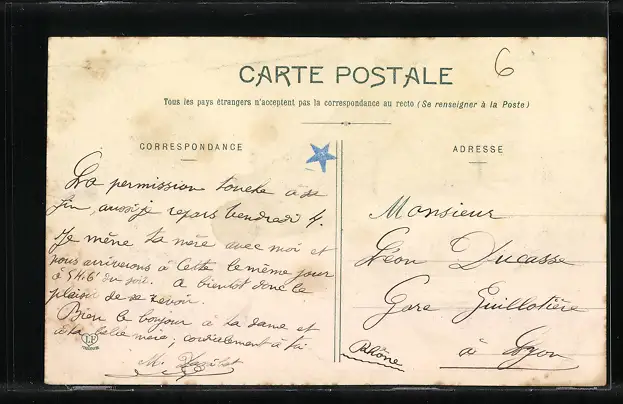 6
CARTE POSTALE
Tous les pays étrangers n'acceptent pas la correspondance au recto (Se renseigner à la Poste)
CORRESPONDANCE
ADRESSE
La permission touche à sa
fin, aussi je repars Vendredi 4.
Je mène ta mère avec moi et
nous arriverons à Cette le même jour
à 5h.6' du soir. A bientôt donc le
plaisir de se revoir.
Bien le bonjour à ta dame et
à ta belle mère, cordialement à toi.
M.
LF
Monsieur
Léon Ducasse
Gare Guillotière
à Lyon
Rhône